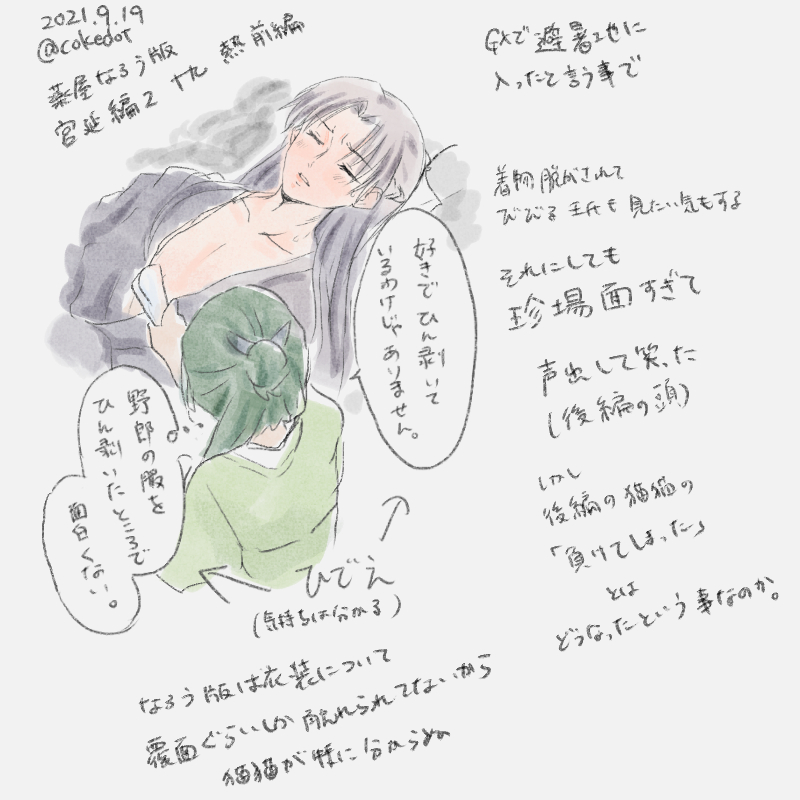 2021.9.19
@cokedot
薬屋なろう版
宮廷編2 十九 熱 前編
GXで避暑地に
入ったと言う事で
着物脱がされて
びびる壬氏も見たい気もする
それにしても
珍場面すぎて
声出して笑った
(後編の頭)
しかし
後編の猫猫の
「負けてしまった」
とは
どうなったという事なのか。
好きでひん剥いて
いるわけじゃありません。
野郎の服を
ひん剥いたところで
面白くない。
ひでえ
(気持ちは分かる)
なろう版は衣装について
覆面ぐらいしか触れられてないから
猫猫が様に分からぬ